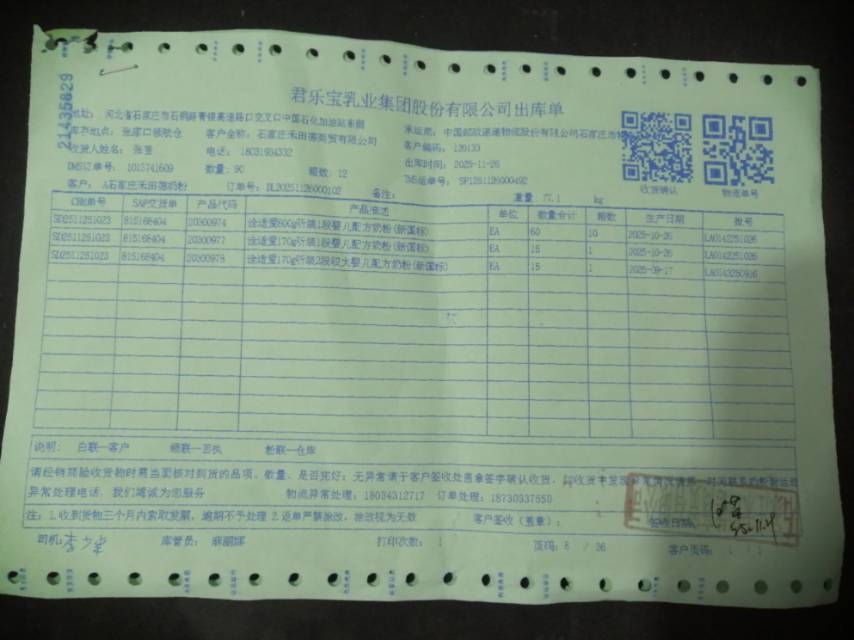 21435829
君乐宝乳业集团股份有限公司出库单
地址: 河北省石家庄市石铜路青银高速路口交叉口中国石化加油站东侧
库存地点: 张家口领航仓 客户名称: 石家庄禾田蒲商贸有限公司 承运商: 中国邮政速递物流股份有限公司石家庄市
收货人姓名: 电话: 18031904332 客户编码: 120133
DMS订单号: 1013741609 数量: 90 箱数: 12 出库时间: 2025-11-26
客户: A石家庄禾田蒲奶粉 订单号: DL20251126000102 备注: TMS运单号: SP1251126000492
重量: 77.1 kg
收货确认 物流单号
CRM单号 SAP交货单 产品代码 产品描述 单位 数量合计 箱数 生产日期 批号
SD2511261023 815168404 20300974 涂适爱800g听装1段婴儿配方奶粉(新国标) EA 60 10 2025-10-26 LA0142251026
SD2511261023 815168404 20300977 涂适爱170g听装1段婴儿配方奶粉(新国标) EA 15 1 2025-10-26 LA0142251026
SD2511261023 815168404 20300978 涂适爱170g听装2段较大婴儿配方奶粉(新国标) EA 15 1 2025-09-17 LA0143250916
说明: 白联—客户 粉联—仓库
请经销商验收货物时需当面核对到货的品项、数量、是否完好; 无异常请于客户签收处盖章签字确认收货,
异常处理电话, 我们竭诚为您服务 物流异常处理: 18034312717 订单处理: 18730537550
注: 1.收到货物三个月内索取发票, 逾期不予处理 2.返单严禁涂改, 涂改视为无效 客户签收(盖章): 签收日期:
司机: 库管员: 麻丽娜 打印次数: 1 页码: 6 / 26 客户页码: 1 / 1